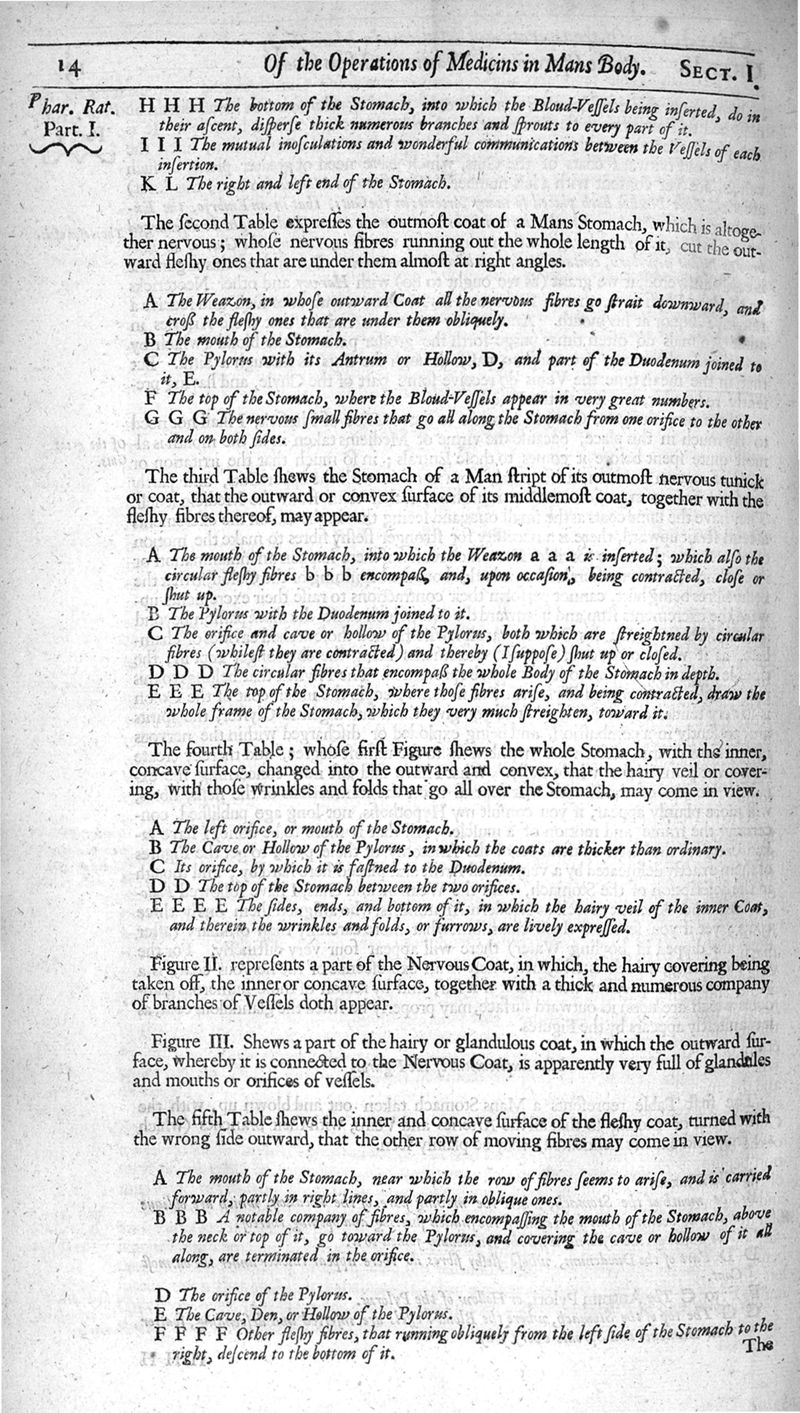 14 Of the Operations of Medicins in Mans Body. SECT. I.
Phar. Rat.
Part. I.
H H H The bottom of the Stomach, into which the Bloud-Veſſels being inſerted, do in
their aſcent, diſperſe thick numerous branches and ſprouts to every part of it.
I I I The mutual inoſculations and wonderful communications between the Veſſels of each
inſertion.
K L The right and left end of the Stomach.
The ſecond Table expreſſes the outmoſt coat of a Mans Stomach, which is altoge-
ther nervous; whoſe nervous fibres running out the whole length of it, cut the out-
ward fleſhy ones that are under them almoſt at right angles.
A The Weazon, in whoſe outward Coat all the nervous fibres go ſtrait downward, and
croſs the fleſhy ones that are under them obliquely.
B The mouth of the Stomach.
C The Pylorus with its Antrum or Hollow, D, and part of the Duodenum joined to
it, E.
F The top of the Stomach, where the Bloud-Veſſels appear in very great numbers.
G G G The nervous ſmall fibres that go all along the Stomach from one orifice to the other
and on both ſides.
The third Table ſhews the Stomach of a Man ſtript of its outmoſt nervous tunick
or coat, that the outward or convex ſurface of its middlemoſt coat, together with the
fleſhy fibres thereof, may appear.
A The mouth of the Stomach, into which the Weazon a a a is inſerted; which alſo the
circular fleſhy fibres b b b encompaſs, and, upon occaſion, being contracted, cloſe or
ſhut up.
B The Pylorus with the Duodenum joined to it.
C The orifice and cave or hollow of the Pylorus, both which are ſtreightned by circular
fibres (whileſt they are contracted) and thereby (I ſuppoſe) ſhut up or cloſed.
D D D The circular fibres that encompaſs the whole Body of the Stomach in depth.
E E E The top of the Stomach, where thoſe fibres ariſe, and being contracted, draw the
whole frame of the Stomach, which they very much ſtreighten, toward it.
The fourth Table; whoſe firſt Figure ſhews the whole Stomach, with the inner,
concave ſurface, changed into the outward and convex, that the hairy veil or cover-
ing, with thoſe wrinkles and folds that go all over the Stomach, may come in view.
A The left orifice, or mouth of the Stomach.
B The Cave or Hollow of the Pylorus, in which the coats are thicker than ordinary.
C Its orifice, by which it is faſtned to the Duodenum.
D D The top of the Stomach between the two orifices.
E E E E The ſides, ends, and bottom of it, in which the hairy veil of the inner Coat,
and therein the wrinkles and folds, or furrows, are lively expreſſed.
Figure II. repreſents a part of the Nervous Coat, in which, the hairy covering being
taken off, the inner or concave ſurface, together with a thick and numerous company
of branches of Veſſels doth appear.
Figure III. Shews a part of the hairy or glandulous coat, in which the outward ſur-
face, whereby it is connected to the Nervous Coat, is apparently very full of glandules
and mouths or orifices of veſſels.
The fifth Table ſhews the inner and concave ſurface of the fleſhy coat, turned with
the wrong ſide outward, that the other row of moving fibres may come in view.
A The mouth of the Stomach, near which the row of fibres ſeems to ariſe, and is carried
forward, partly in right lines, and partly in oblique ones.
B B B A notable company of fibres, which encompaſſing the mouth of the Stomach, above
the neck or top of it, go toward the Pylorus, and covering the cave or hollow of it all
along, are terminated in the orifice.
D The orifice of the Pylorus.
E The Cave, Den, or Hollow of the Pylorus.
F F F F Other fleſhy fibres, that running obliquely from the left ſide of the Stomach to the
right, deſcend to the bottom of it.
The